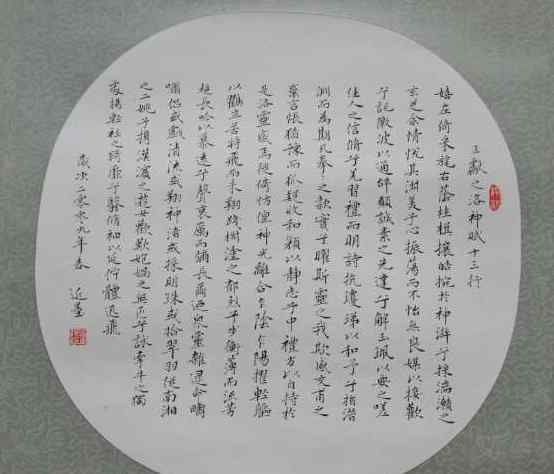 王獻之洛神賦十三行
嬉左倚采旄右蔭桂旗攘皓腕於神滸兮採湍瀨之
玄芝余情悅其淑美兮心振蕩而不怡無良媒以接歡
兮託微波以通辭願誠素之先達兮解玉珮以要之嗟
佳人之信脩兮羌習禮而明詩抗瓊珶以和予兮指潛
淵而為期執拳拳之款實兮懼斯靈之我欺感交甫之
棄言悵猶豫而狐疑收和顏以靜志兮申禮防以自持於
是洛靈感焉徙倚仿偟神光離合乍陰乍陽擢輕軀
以鶴立若將飛而未翔踐椒塗之郁烈兮步蘅薄而流芳
超長吟以慕遠兮聲哀厲而彌長爾乃衆靈雜遝命疇
嘯侶或戲清流或翔神渚或採明珠或拾翠羽從南湘
之二姚兮攜漢濱之遊女歎匏媧之無匹兮詠牽牛之獨
處揚輕袿之綺靡兮翳脩袖以延佇體迅飛
歲次二零零九年春 近墨